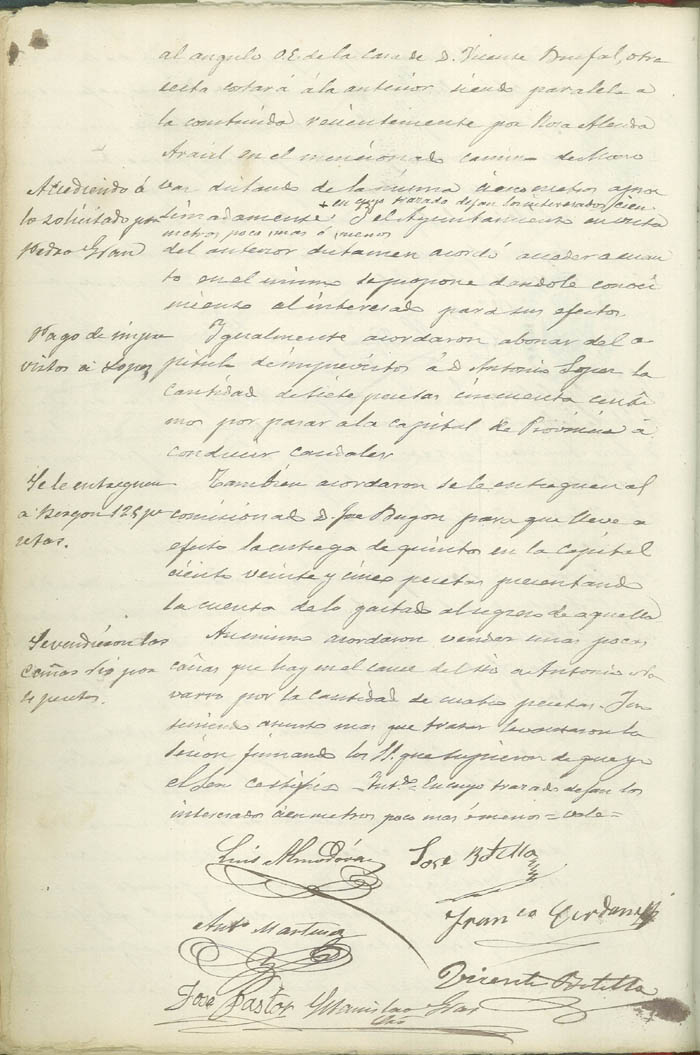 al angulo OE de la Casa de D. Vicente Bufal, otra
recta cortará á la anterior siendo paralela a
la construida recientemente por Rosa Alenda
en el mencionado camino de Mono
var distando de la misma cien metros aproxi
+ en cuyo trazado dejan los interesados cien
madamente + Y el Ayuntamiento en vista
metros poco mas ó menos
del anterior dictamen acordó acceder a cuan
to en el mismo se propone dandole conoci
miento al interesado para sus efectos.
Accediendo á
lo solicitado por
Pedro Gran
Igualmente acordaron abonar del ca
pitulo de imprevistos á D. Antonio Lopez la
cantidad de siete pesetas cincuenta centi
mos por pasar a la Capital de Provincia á
conducir caudales
Pago de impre
vistos á Lopez
Tambien acordaron se le entreguen al
comisionado D. Jose para que lleve a
efecto la entrega de quintos en la Capital
ciento veinte y cinco pesetas presentando
la cuenta de lo gastado al regreso de aquella
Se le entreguen
a 125 pe
setas.
Asimismo acordaron vender unas pocas
cañas que hay en el cauce del rio a Antonio Na
varro por la cantidad de cuatro pesetas. Y no
teniendo asunto mas que tratar levantaron la
sesion firmando los Sres. que supieron de que yo
el Srio certifico = Entrdo = En cuyo trazado dejan los
interesados cien metros poco mas ó menos = vale =
Se vendieron las
cañas rio por
4 pesetas.
Luis Almodóvar
Jose Botella
Franco Cerdan
Anto Martinez
Vicente Botella
Jose Pastor
Estanislao
Srio